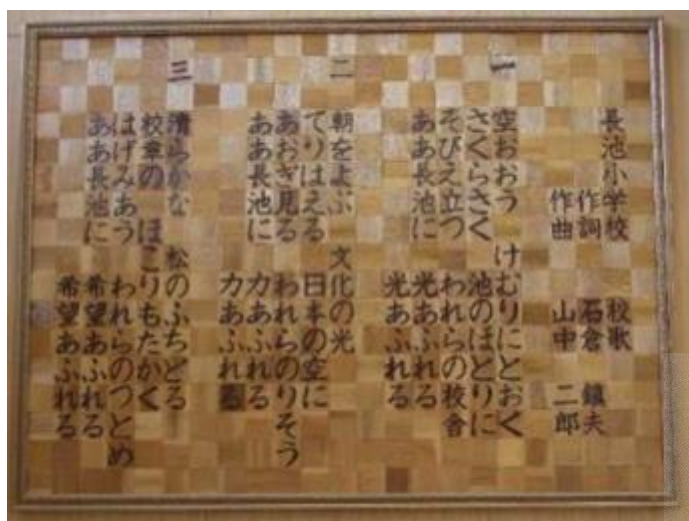 長池小学校 校歌
作詞 石倉 鎮夫
作曲 山中 二郎
一
空おおう けむりにとおく
さくらさく 池のほとりに
そびえ立つ われらの校舎
ああ長池に 光あふれる
光あふれる
二
朝をよぶ 文化の光
てりはえる 日本の空に
あおぎ見る われらのりそう
ああ長池に 力あふれる
力あふれる
三
清らかな 松のふちどる
校章の ほこりもたかく
はげみあう われらのつとめ
ああ長池に 希望あふれる
希望あふれる